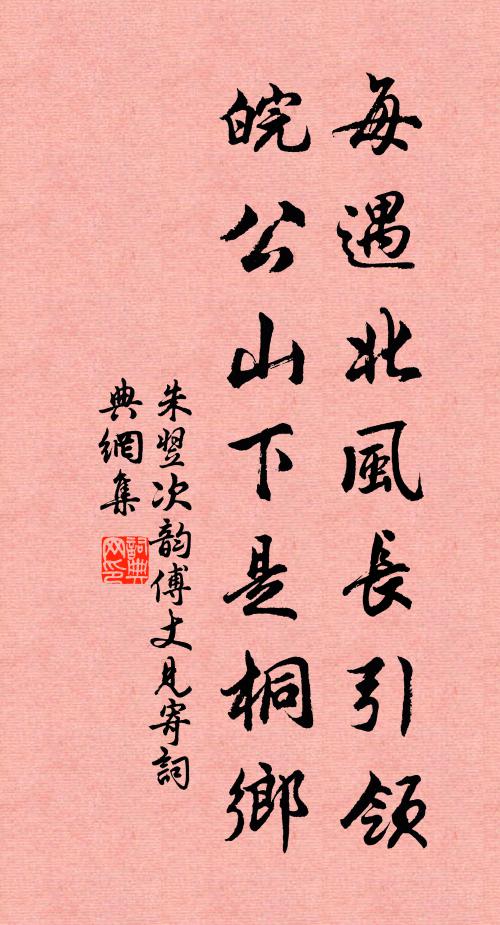 每遇北風長引領
皖公山下是桐鄉
朱翌次韵傅丈見寄詞
典網集
詞典網印